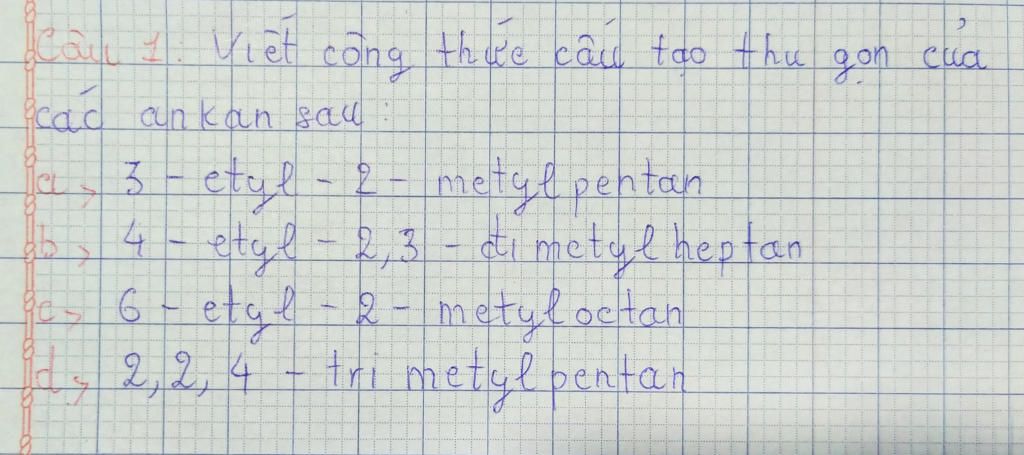 Câu 1: Viết công thức cấu tạo thu gọn của
các ankan sau:
a, 3 - etyl - 2 - metylpentan
b, 4 - etyl - 2,3 - đimetylheptan
c, 6 - etyl - 2 - metyloctan
d, 2,2,4 - trimetylpentan